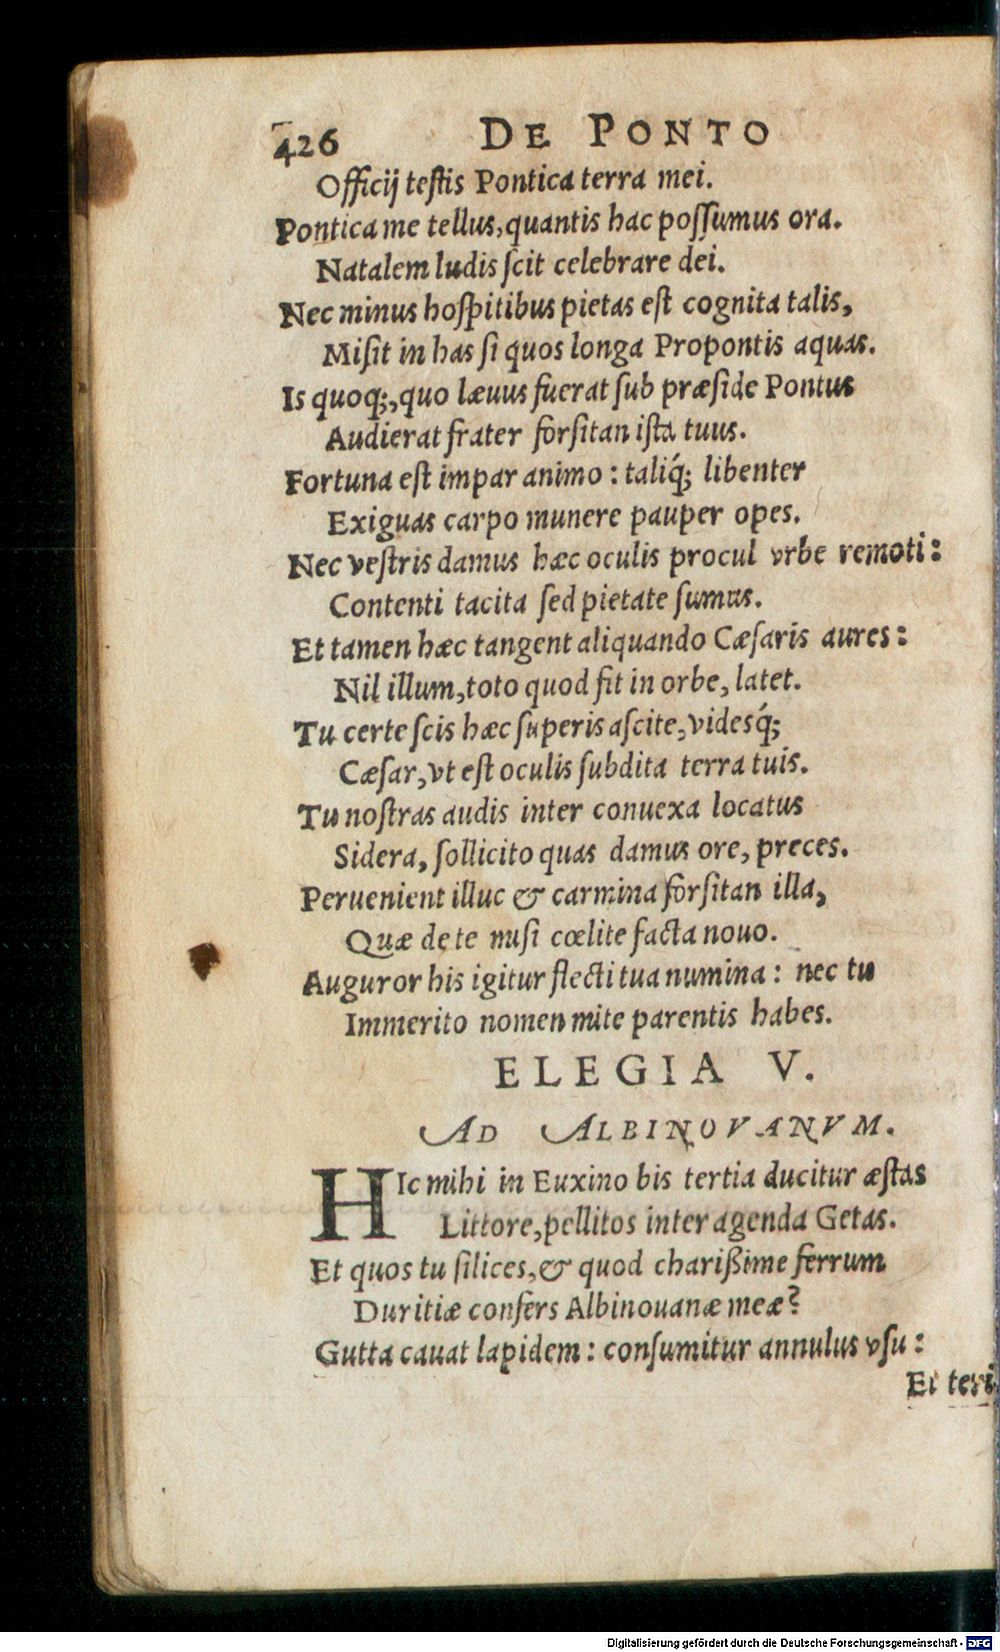 426 DE PONTO
Officij teſtis Pontica terra mei.
Pontica me tellus, quantis hac poſſumus ora.
Natalem ludis ſcit celebrare dei.
Nec minus hoſpitibus pietas eſt cognita talis,
Miſit in has ſi quos longa Propontis aquas.
Is quoq;, quo læuus fuerat ſub præſide Pontus
Audierat frater forſitan iſta tuus.
Fortuna eſt impar animo: taliq́; libenter
Exiguas carpo munere pauper opes.
Nec veſtris damus hæc oculis procul vrbe remoti:
Contenti tacita ſed pietate ſumus.
Et tamen hæc tangent aliquando Cæſaris aures:
Nil illum, toto quod fit in orbe, latet.
Tu certe ſcis hæc ſuperis aſcite, videsq́;
Cæſar, vt eſt oculis ſubdita terra tuis.
Tu noſtras audis inter conuexa locatus
Sidera, ſollicito quas damus ore, preces.
Peruenient illuc & carmina forſitan illa,
Quæ de te miſi cœlite facta nouo.
Auguror his igitur flecti tua numina: nec tu
Immerito nomen mite parentis habes.
ELEGIA V.
AD ALBINOVANVM.
HIc mihi in Euxino bis tertia ducitur æſtas
Littore, pellitos inter agenda Getas.
Et quos tu ſilices, & quod charißime ferrum
Duritiæ confers Albinouanæ meæ?
Gutta cauat lapidem: conſumitur annulus vſu:
Et teri
Digitalisierung gefördert durch die Deutsche Forschungsgemeinschaft - DFG